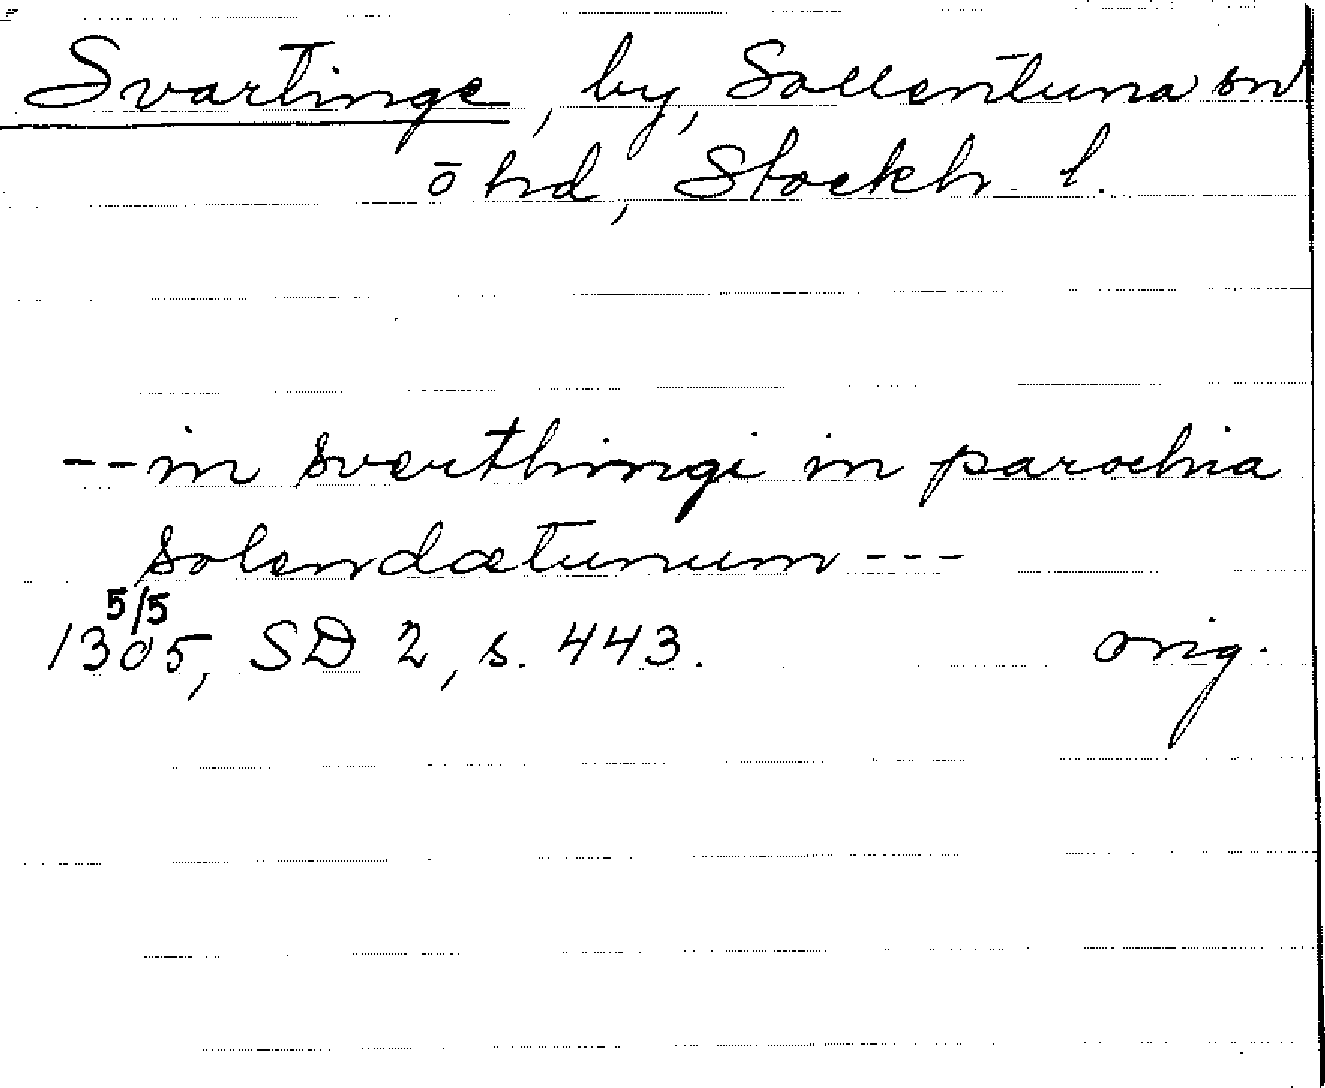 Svartinge, by, Sollentuna sn
ö hd, Stockh l.
--in sverthingi in parochia
solendætunum ---
5/5
1305, SD 2, s. 443. orig.